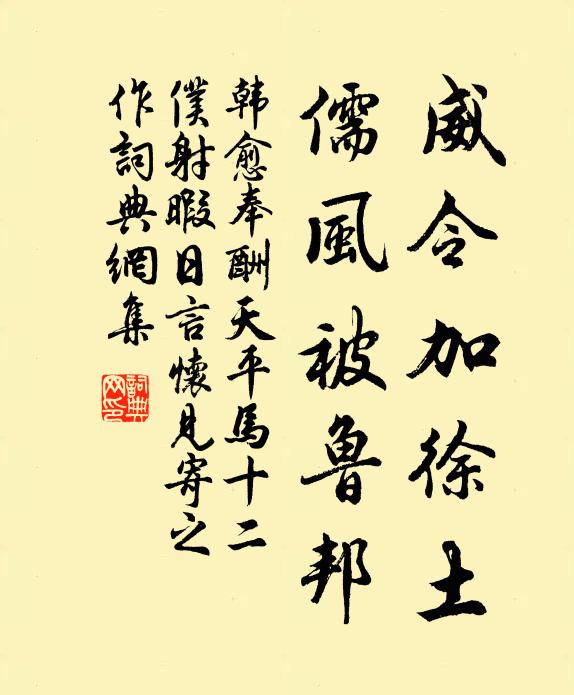 威令加徐土
儒風被魯邦
韩愈奉酬天平馬十二
僕射暇日言懷見寄之
作詞典網集
詞典
网印